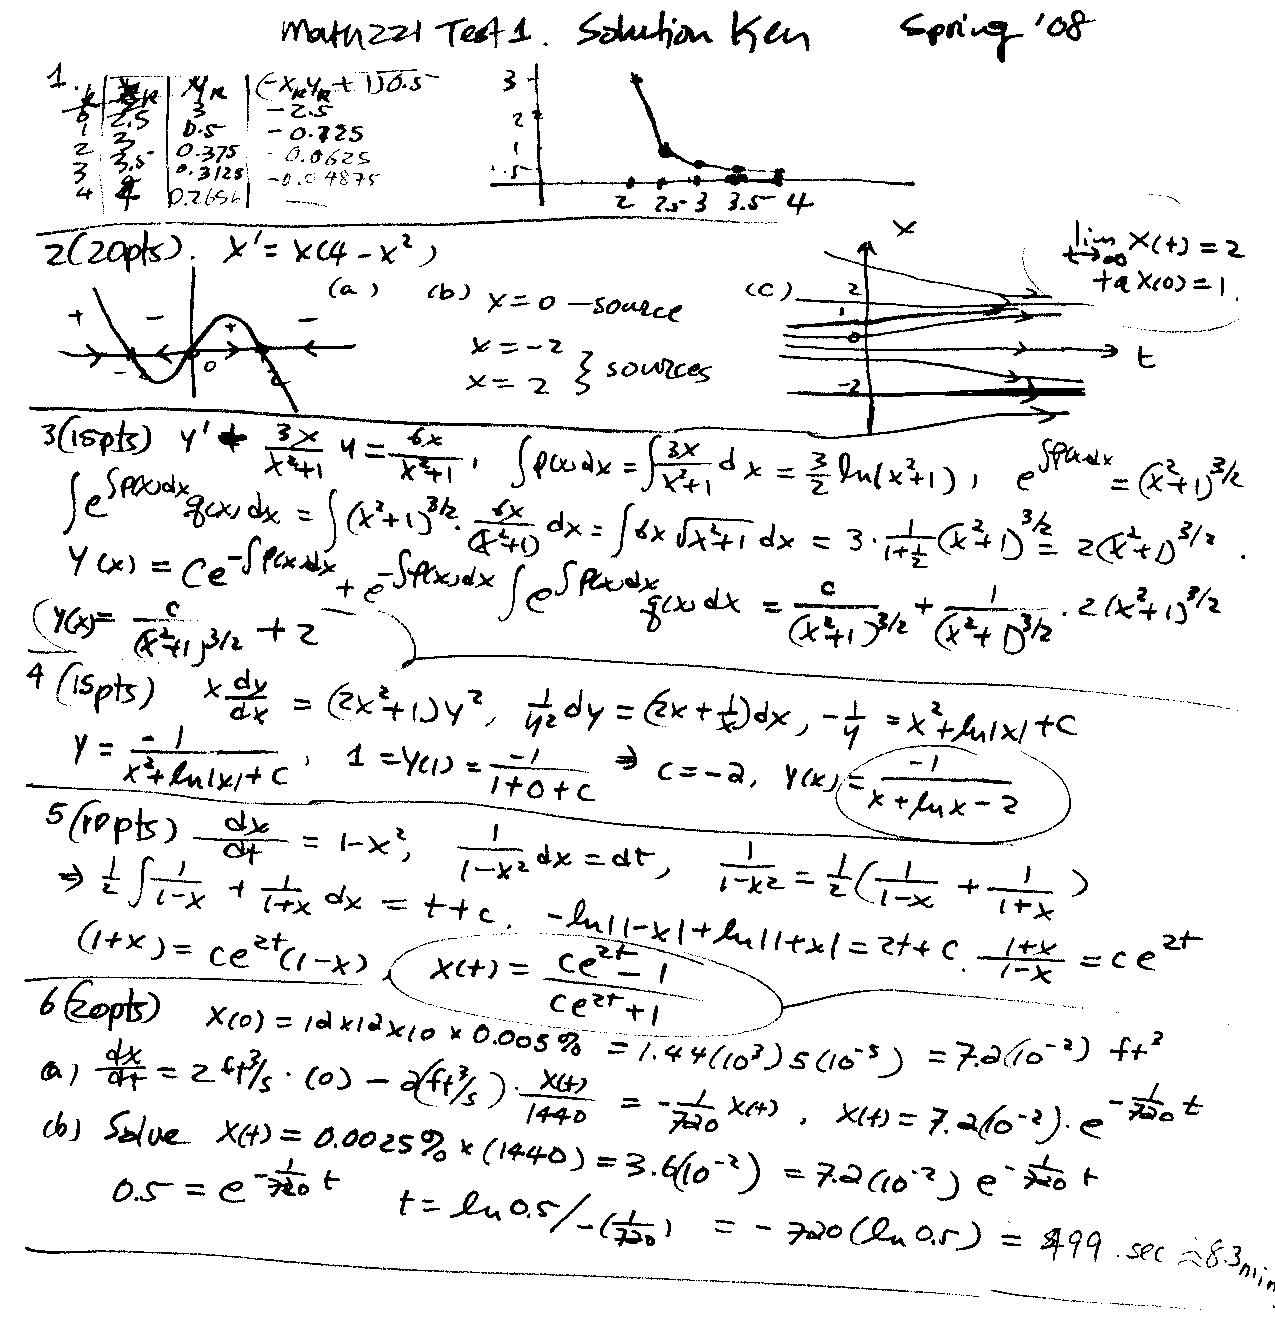 Math 221 Test 1. Solution Key Spring '08
1.
k | x_k | y_k | (-x_k y_k + 1)0.5
0 2.5 3 -2.5
1 0.5 -0.725
2 3 0.375 -0.0625
3 3.5 0.3125
4 4 0.2656 —
3
2
1
.5
2 2.5 3 3.5 4
2(20pts). x' = x(4 - x²)
(a) (b) x = 0 - source
x = -2
x = 2 } sources
+ - + -
0 2
(c) x
2
1
0
-2
t
lim x(t) = 2
t→∞
x(0) = 1.
3(15pts) y' + 3x/(x²+1) y = 6x/(x²+1), ∫p(x)dx = ∫3x/(x²+1) dx = 3/2 ln(x²+1), e^{∫p(x)dx} = (x²+1)^{3/2}
∫e^{∫p(x)dx} q(x)dx = ∫(x²+1)^{3/2} · 6x/(x²+1) dx = ∫6x√(x²+1) dx = 3 · 1/(1+½) (x²+1)^{3/2} = 2(x²+1)^{3/2}.
y(x) = Ce^{-∫p(x)dx} + e^{-∫p(x)dx} ∫e^{∫p(x)dx} q(x)dx = c/(x²+1)^{3/2} + 1/(x²+1)^{3/2} · 2(x²+1)^{3/2}
y(x) = c/(x²+1)^{3/2} + 2
4 (15pts) x dy/dx = (2x²+1)y², 1/y² dy = (2x + 1/x)dx, -1/y = x² + ln|x| + C
y = -1/(x² + ln|x| + C), 1 = y(1) = -1/(1+0+C) ⇒ C = -2, y(x) = -1/(x + ln x - 2)
5 (10pts) dx/dt = 1-x², 1/(1-x²) dx = dt, 1/(1-x²) = ½(1/(1-x) + 1/(1+x))
⇒ ½∫1/(1-x) + 1/(1+x) dx = t + c. -ln|1-x| + ln|1+x| = 2t + c. (1+x)/(1-x) = ce^{2t}
(1+x) = ce^{2t}(1-x), x(t) = (ce^{2t} - 1)/(ce^{2t} + 1)
6 (20pts) x(0) = 12x12x10 x 0.005% = 1.44(10³)5(10⁻⁵) = 7.2(10⁻²) ft³
(a) dx/dt = 2 ft³/s · (0) - 2(ft³/s) · x(t)/1440 = -1/720 x(t), x(t) = 7.2(10⁻²) · e^{-1/720 t}
(b) Solve x(t) = 0.0025% x (1440) = 3.6(10⁻²) = 7.2(10⁻²) e^{-1/720 t}
0.5 = e^{-1/720 t} t = ln 0.5/-(1/720) = -720(ln 0.5) = 499. sec ≈ 8.3 min